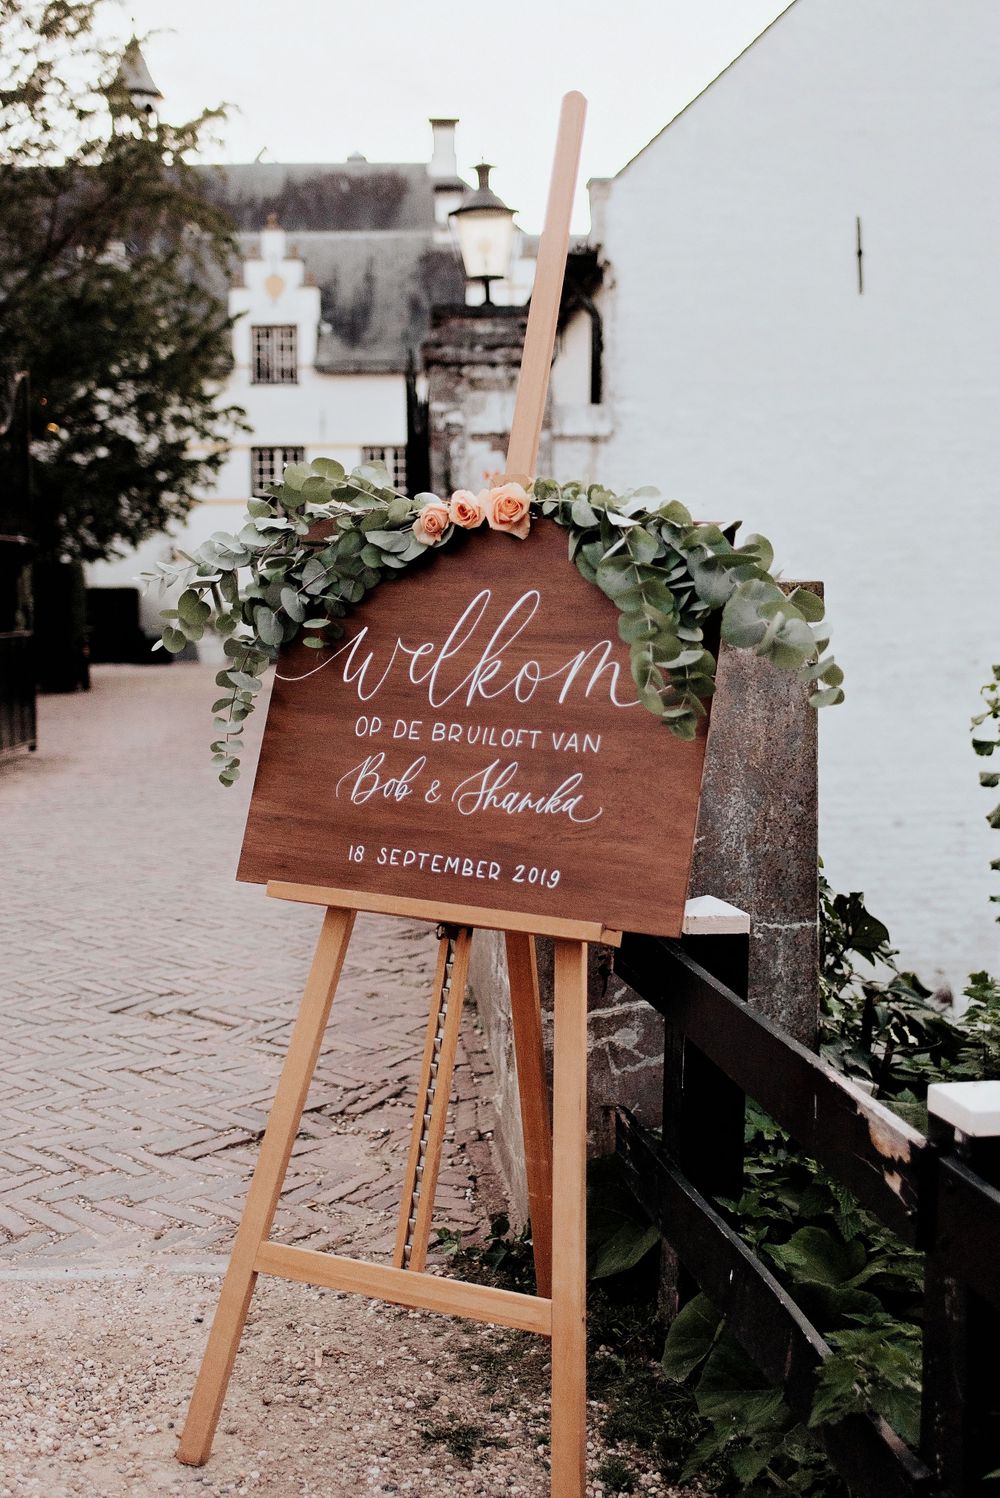 welkom
OP DE BRUILOFT VAN
Bob & Shanika
18 SEPTEMBER 2019